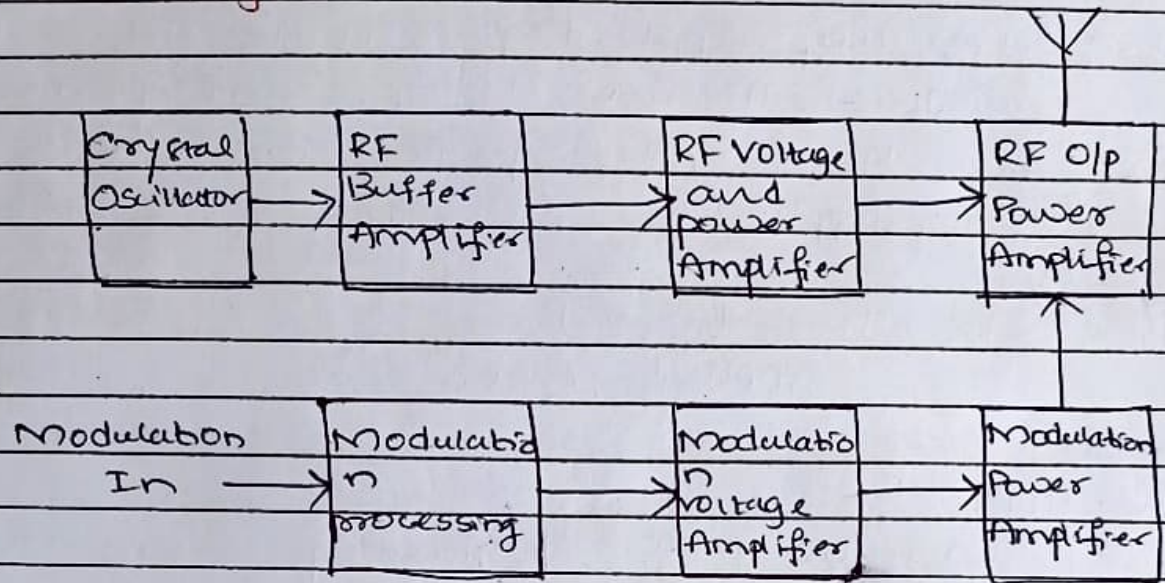 Crystal
Oscillator
RF
Buffer
Amplifier
RF Voltage
and
power
Amplifier
RF O/p
Power
Amplifier
Modulation
In
Modulatio
n
processing
Modulatio
n
voltage
Amplifier
Modulation
Power
Amplifier